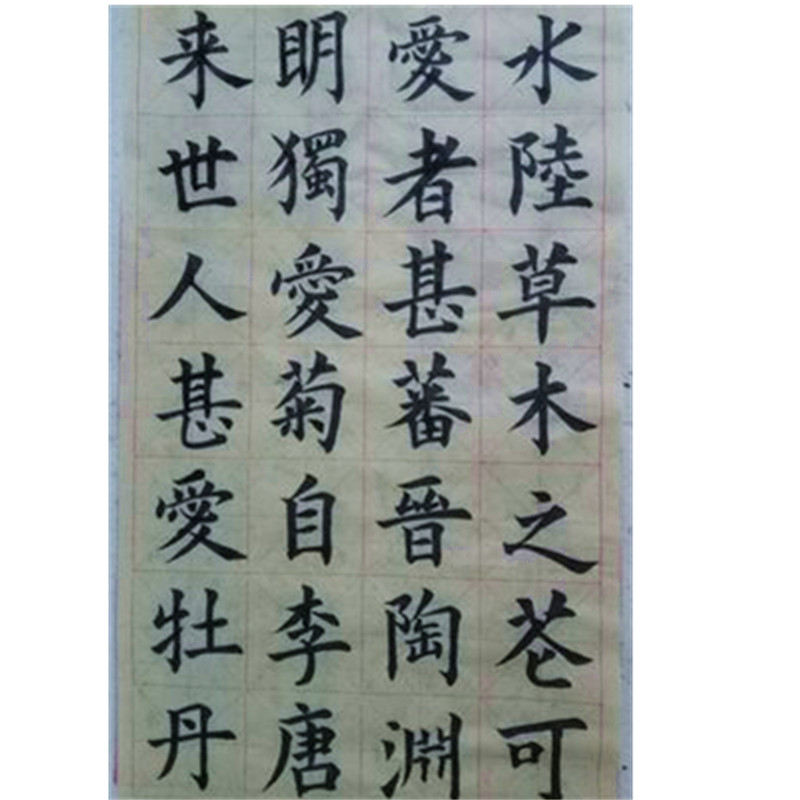 水陸草木之苍可
愛者甚蕃晉陶淵
明獨愛菊自李唐
来世人甚愛牡丹